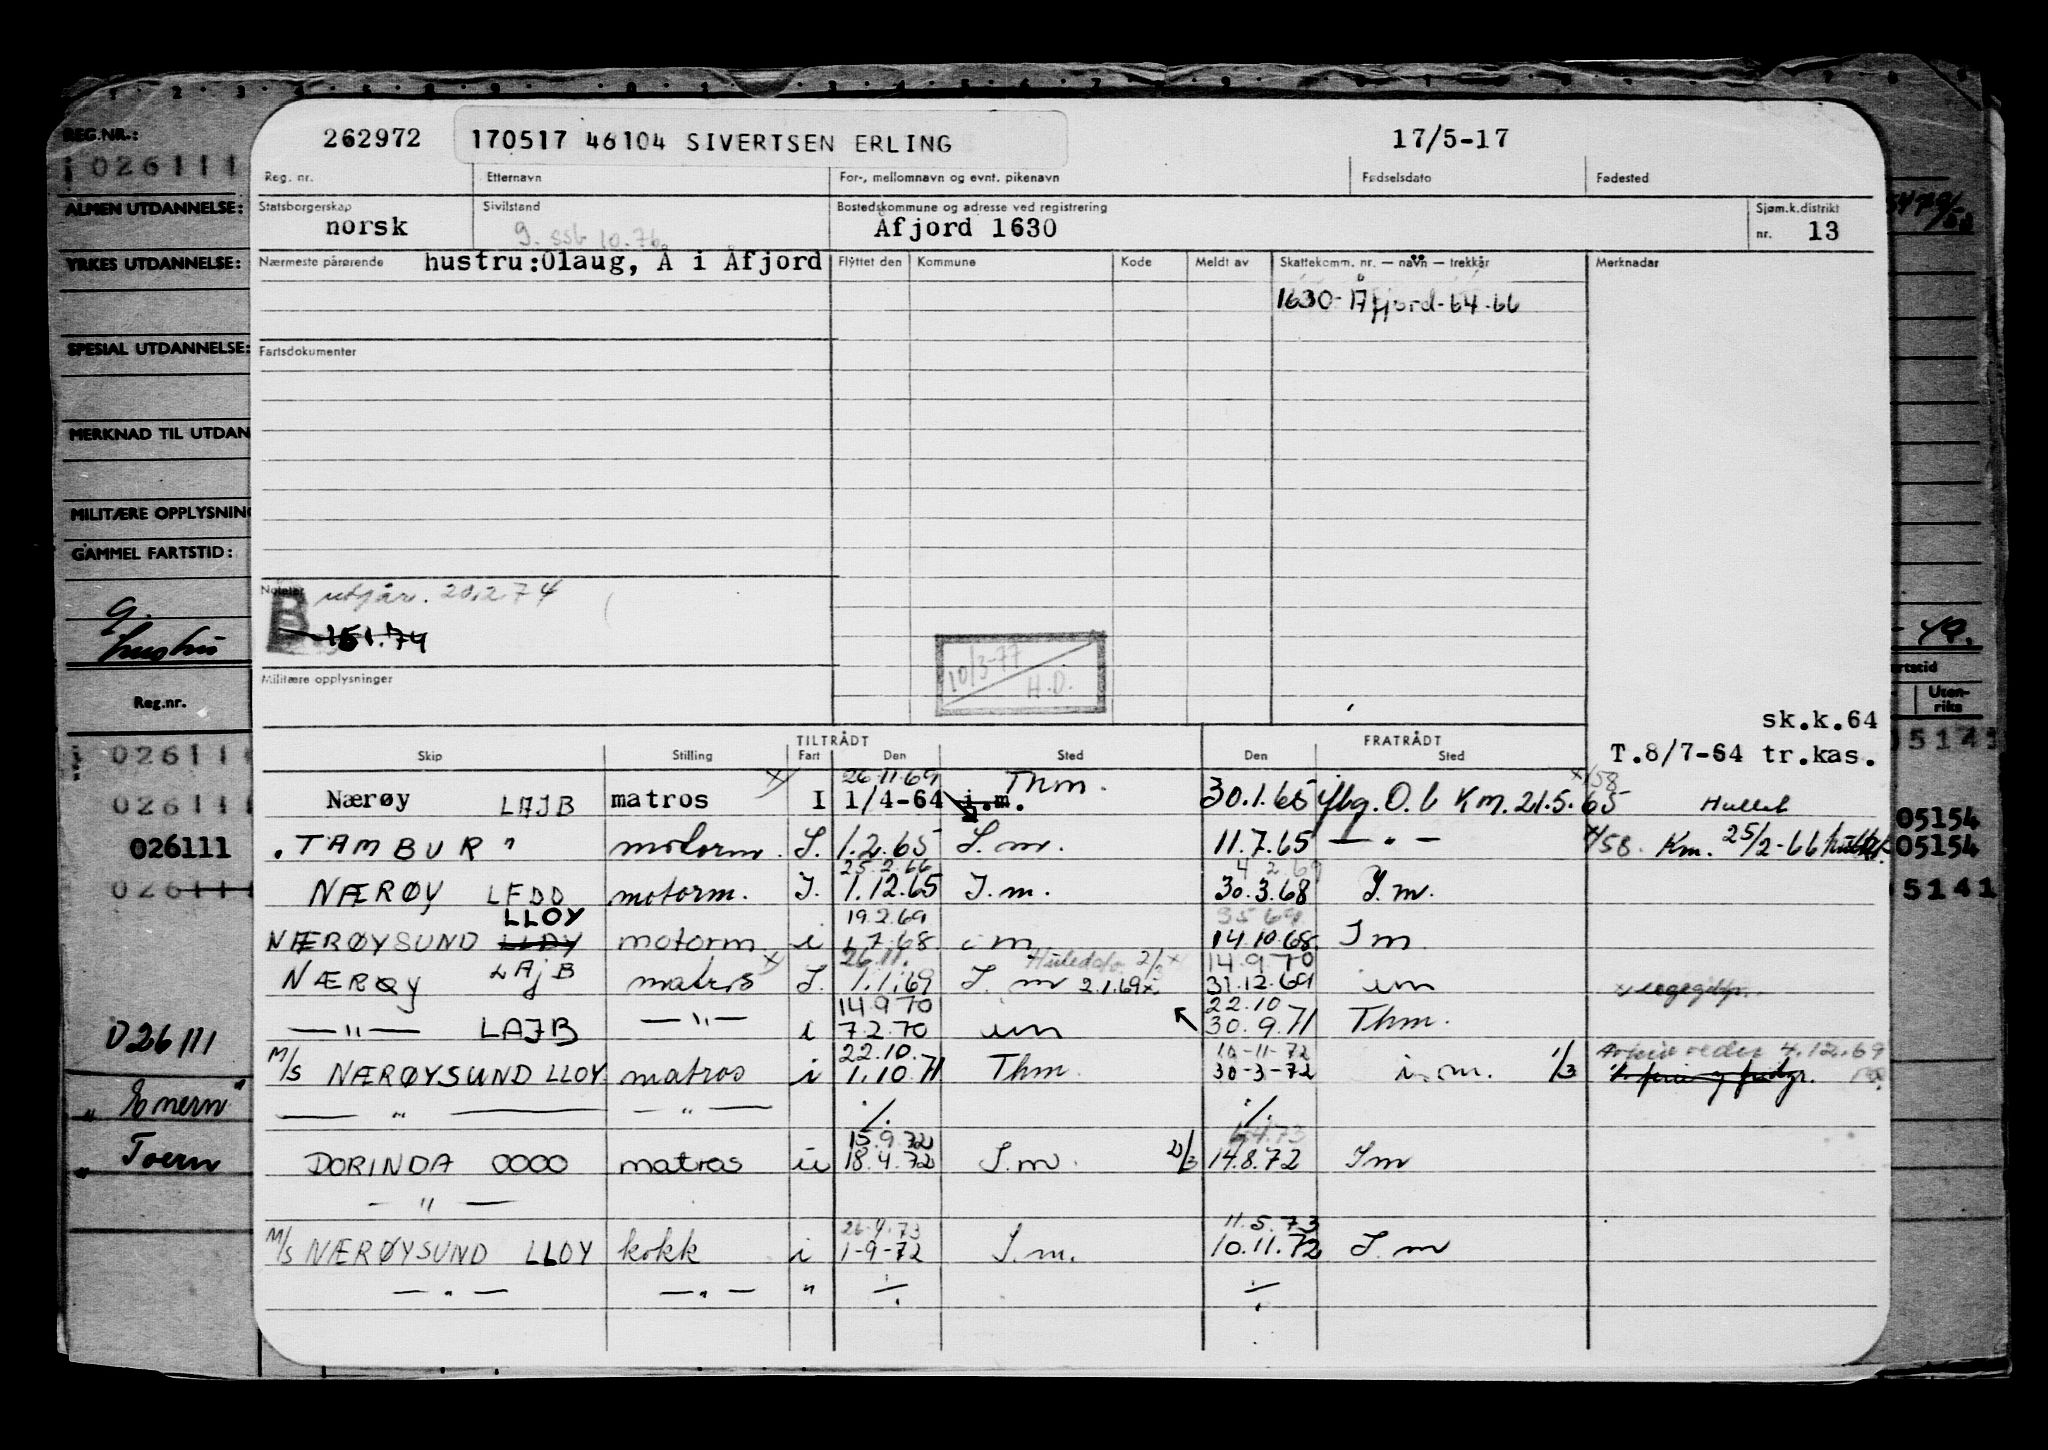 REG.NR.:
026111
ALMEN UTDANNELSE:
YRKES UTDANNELSE:
SPESIAL UTDANNELSE:
MERKNAD TIL UTDAN
MILITÆRE OPPLYSNING
GAMMEL FARTSTID:
g.
hustru
Reg.nr.
026111
026111
026111
026111
026111
"Enern"
"Toern
262972 170517 46104 SIVERTSEN ERLING 17/5-17
Reg. nr. Etternavn For-, mellomnavn og evnt. pikenavn Fødselsdato Fødested
Statsborgerskap Sivilstand Bostedskommune og adresse ved registrering Sjøm.k.distrikt
norsk g. ssb 10.76 Åfjord 1630 nr. 13
Nærmeste pårørende hustru:Olaug, Å i Åfjord Flyttet den Kommune Kode Meldt av Skattekomm. nr. — navn — trekkår Merknader
1630-Åfjord-64-66
Fartsdokumenter
Notater
B utgår. 20.2.74
151.74
10/3-77
H.D.
Militære opplysninger
sk.k.64
T.8/7-64 tr.kas.
TILTRÅDT FRATRÅDT
Skip Stilling Fart Den Sted Den Sted
26.11.69 Thm. x/58
Nærøy LAJB matros I 1/4-64 i.m. 30.1.65 jbg. O.b Km. 21.5.65 Hullet
"TAMBUR" motorm. I. 1.2.65 I.m. 11.7.65 — " — x/58. Km. 25/2-66
25.2.66 4 2 69
NÆRØY LEDD motorm. I. 1.12.65 I.m. 30.3.68 I.m.
LLOY 19.2.69 3 5 69
NÆRØYSUND LLDY motorm i 1.7.68 i m 14.10.68 I m
26.11. 14.9 70
NÆRØY LAJB matros I. 1.1.69 I. m 2.1.69 31.12.69 im
14.9 70 22.10
— " — LAJB — " — i 7.2.70 im 30.9.71 Thm.
22.10. 10-11-72 4.12.69
M/S NÆRØYSUND LLOY matros i 1.10.71 Thm. 30-3-72 i.m. 1/3
— " — — " — ./. ./.
15.9.72 6.4.73
DORINDA OOOO matros u 18.4.72 I.m. 14.8.72 I m
— " —
26.4.73 11.5.73
M/S NÆRØYSUND LLOY kokk i 1-9-72 I.m. 10.11.72 I.m
— " — — " — " ./. ./.
Uten-
riks
05154
05154
05141